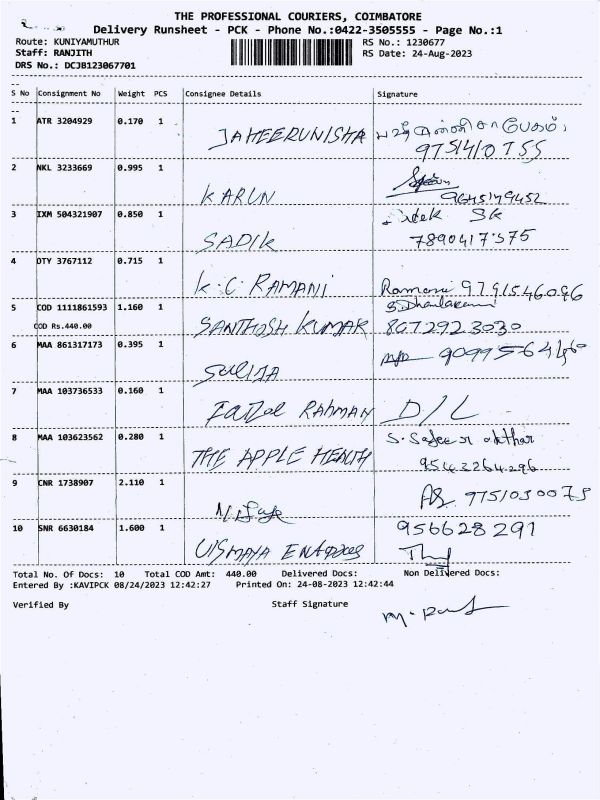 THE PROFESSIONAL COURIERS, COIMBATORE
Delivery Runsheet - PCK - Phone No.:0422-3505555 - Page No.:1
Route: KUNIYAMUTHUR
RS No.: 1230677
Staff: RANJITH
RS Date: 24-Aug-2023
DRS No.: DCJB123067701
S No Consignment No Weight PCS Consignee Details Signature
1 ATR 3204929 0.170 1
JAHEERUNISHA
2 NKL 3233669 0.995 1
KARUN
3 IXM 504321907 0.850 1
Sk
SADIK
4 OTY 3767112 0.715 1
K.C RAMANI Ramani 9791546096
5 COD 1111861593 1.160 1
COD Rs.440.00
SANTHOSH KUMAR 8072923030
6 MAA 861317173 0.395 1
7 MAA 103736533 0.160 1
RAHMAN D/L
8 MAA 103623562 0.280 1
THE APPLE HEALTH 9543264296
9 CNR 1738907 2.110 1
9751030075
10 SNR 6630184 1.600 1
956628291
VISMAYA
Total No. Of Docs: 10 Total COD Amt: 440.00 Delivered Docs: Non Delivered Docs:
Entered By :KAVIPCK 08/24/2023 12:42:27 Printed On: 24-08-2023 12:42:44
Verified By Staff Signature